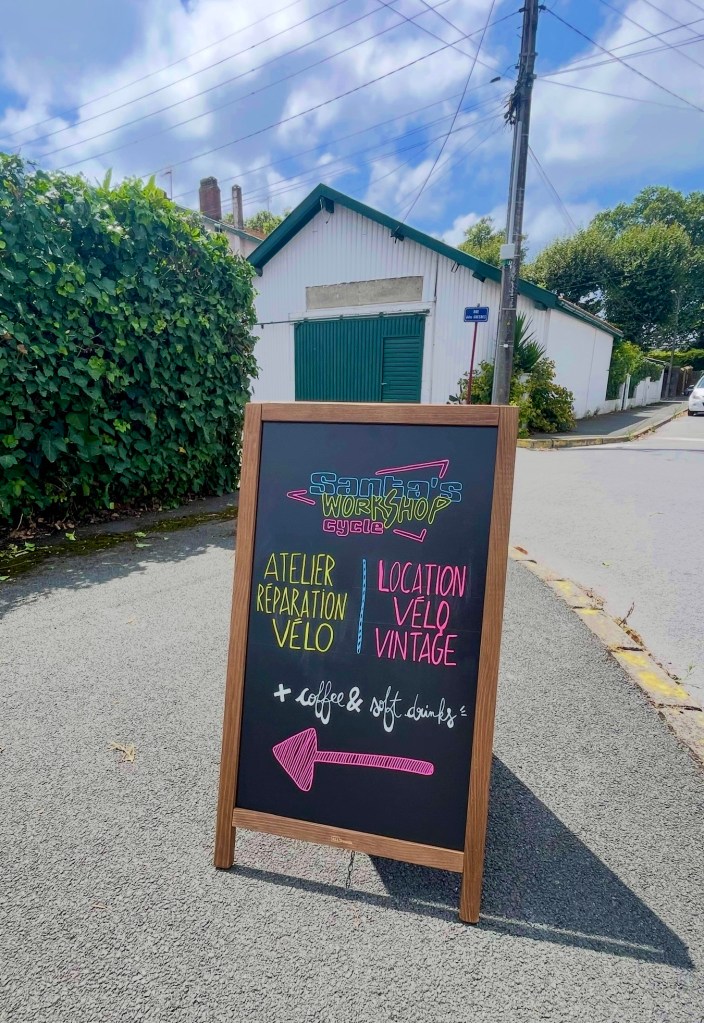 Santa's
WORKSHOP
cycle
ATELIER
RÉPARATION
VÉLO
LOCATION
VÉLO
VINTAGE
+ coffee & soft drinks